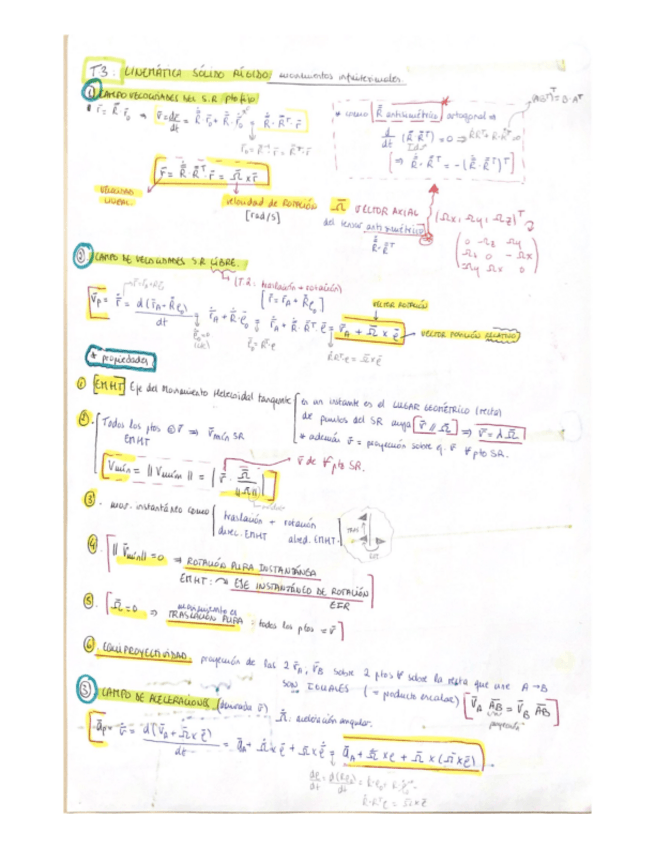 T3. CINEMÁTICA SÓLIDO RÍGIDO, movimientos infinitesimales.
① CAMPO VELOCIDADES DEL S.R pto fijo
* como Ṙ antisimétrica ortogonal ⇒
d/dt (R̄·R̄ᵀ) = 0 ⇒
[⇒ Ṙ·R̄ᵀ = -(Ṙ·R̄ᵀ)ᵀ]
v̄ = Ṙ·R̄ᵀ·r̄ = Ω̄ x r̄
VELOCIDAD LINEAL.
velocidad de ROTACIÓN
[rad/s]
Ω̄ VECTOR AXIAL
del tensor antisimétrico
Ṙ·R̄ᵀ
(Ωx, Ωy, Ωz)ᵀ
② CAMPO DE VELOCIDADES S.R LIBRE.
(T2: traslación + rotación)
[r̄ = r̄A + R̄ρ0]
VECTOR ROTACIÓN
v̄p = ṙ = d(r̄A + R̄ρ0)/dt = ṙA + Ṙ·ρ0 = ṙA + Ṙ·R̄ᵀ·ρ̄ = v̄A + Ω̄ x ρ̄
VECTOR POSICIÓN RELATIVO
* propiedades
① EMHT Eje del Movimiento Helicoidal tangente
en un instante es el LUGAR GEOMÉTRICO (recta)
de puntos del SR cuya v̄ ∥ Ω̄ ⇒ v̄ = λ Ω̄
* además v̄ = proyección sobre ej. v̄ ∀ pto SR.
②. Todos los ptos EMHT v̄ ⇒ v̄mín SR
Vmín = ||Vmín|| = | v̄ · Ω̄/||Ω̄|| |
v̄ de ∀ pto SR.
③. mov. instantáneo como
traslación + rotación
direc. EMHT alred. EMHT.
④. ||v̄mín|| = 0 ⇒ ROTACIÓN PURA INSTANTÁNEA
EMHT: ↝ EJE INSTANTÁNEO DE ROTACIÓN
EIR
⑤. Ω̄ = 0 ⇒ movimiento es TRASLACIÓN PURA : todos los ptos = v̄
⑥ EQUIPROYECTIVIDAD. proyección de las 2 v̄A, v̄B sobre 2 ptos ∀ sobre la recta que une A → B
SON IGUALES (= producto escalar) [v̄A AB = v̄B AB]
③ CAMPO DE ACELERACIONES (derivada v̄)
Ω̇: aceleración angular.
āp = v̇ = d(v̄A + Ω̄ x ρ̄)/dt = āA + Ω̇ x ρ̄ + Ω̄ x ρ̇ = āA + Ω̇ x ρ + Ω̄ x (Ω̄ x ρ̄)